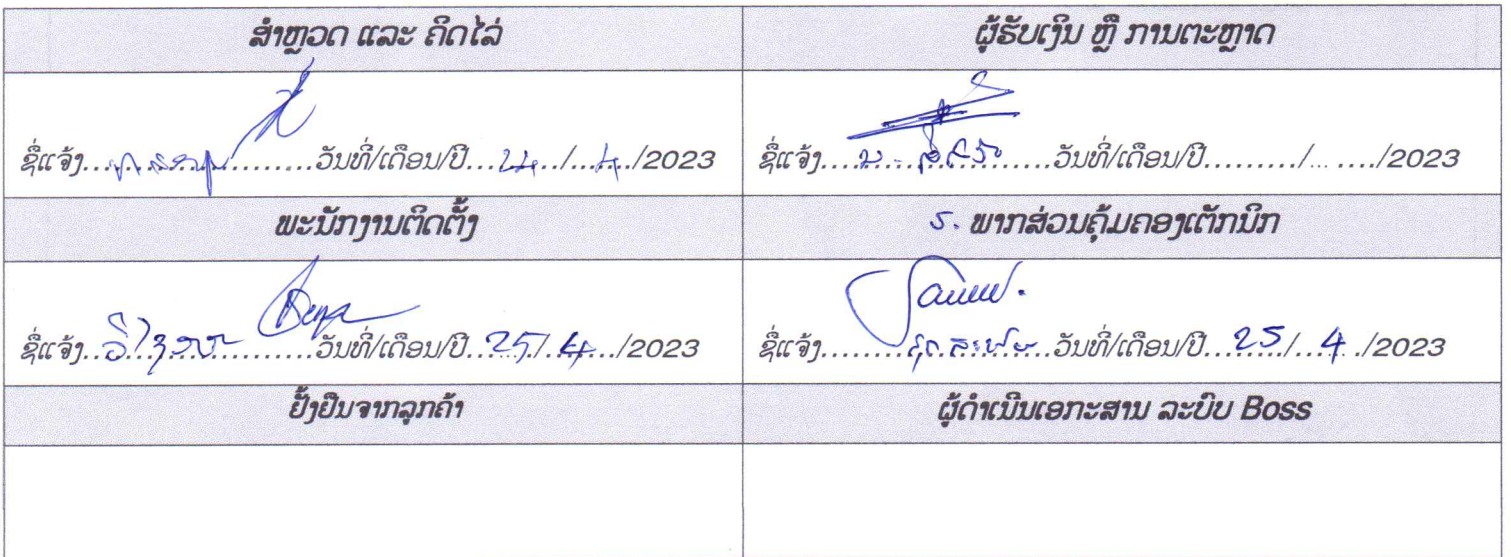 ສຳຫຼວດ ແລະ ຄິດໄລ່
ຜູ້ຮັບເງິນ ຫຼື ການຕະຫຼາດ
ຊື່ແຈ້ງ.....................ວັນທີ່/ເດືອນ/ປີ...24.../...4.../2023
ຊື່ແຈ້ງ.....................ວັນທີ່/ເດືອນ/ປີ........./... ..../2023
ພະນັກງານຕິດຕັ້ງ
ຮ. ພາກສ່ວນຄຸ້ມຄອງເຕັກນິກ
ຊື່ແຈ້ງ.....................ວັນທີ່/ເດືອນ/ປີ...25.../...4.../2023
ຊື່ແຈ້ງ.....................ວັນທີ່/ເດືອນ/ປີ...25.../...4.../2023
ຢັ້ງຢືນຈາກລູກຄ້າ
ຜູ້ດຳເນີນເອກະສານ ລະບົບ Boss